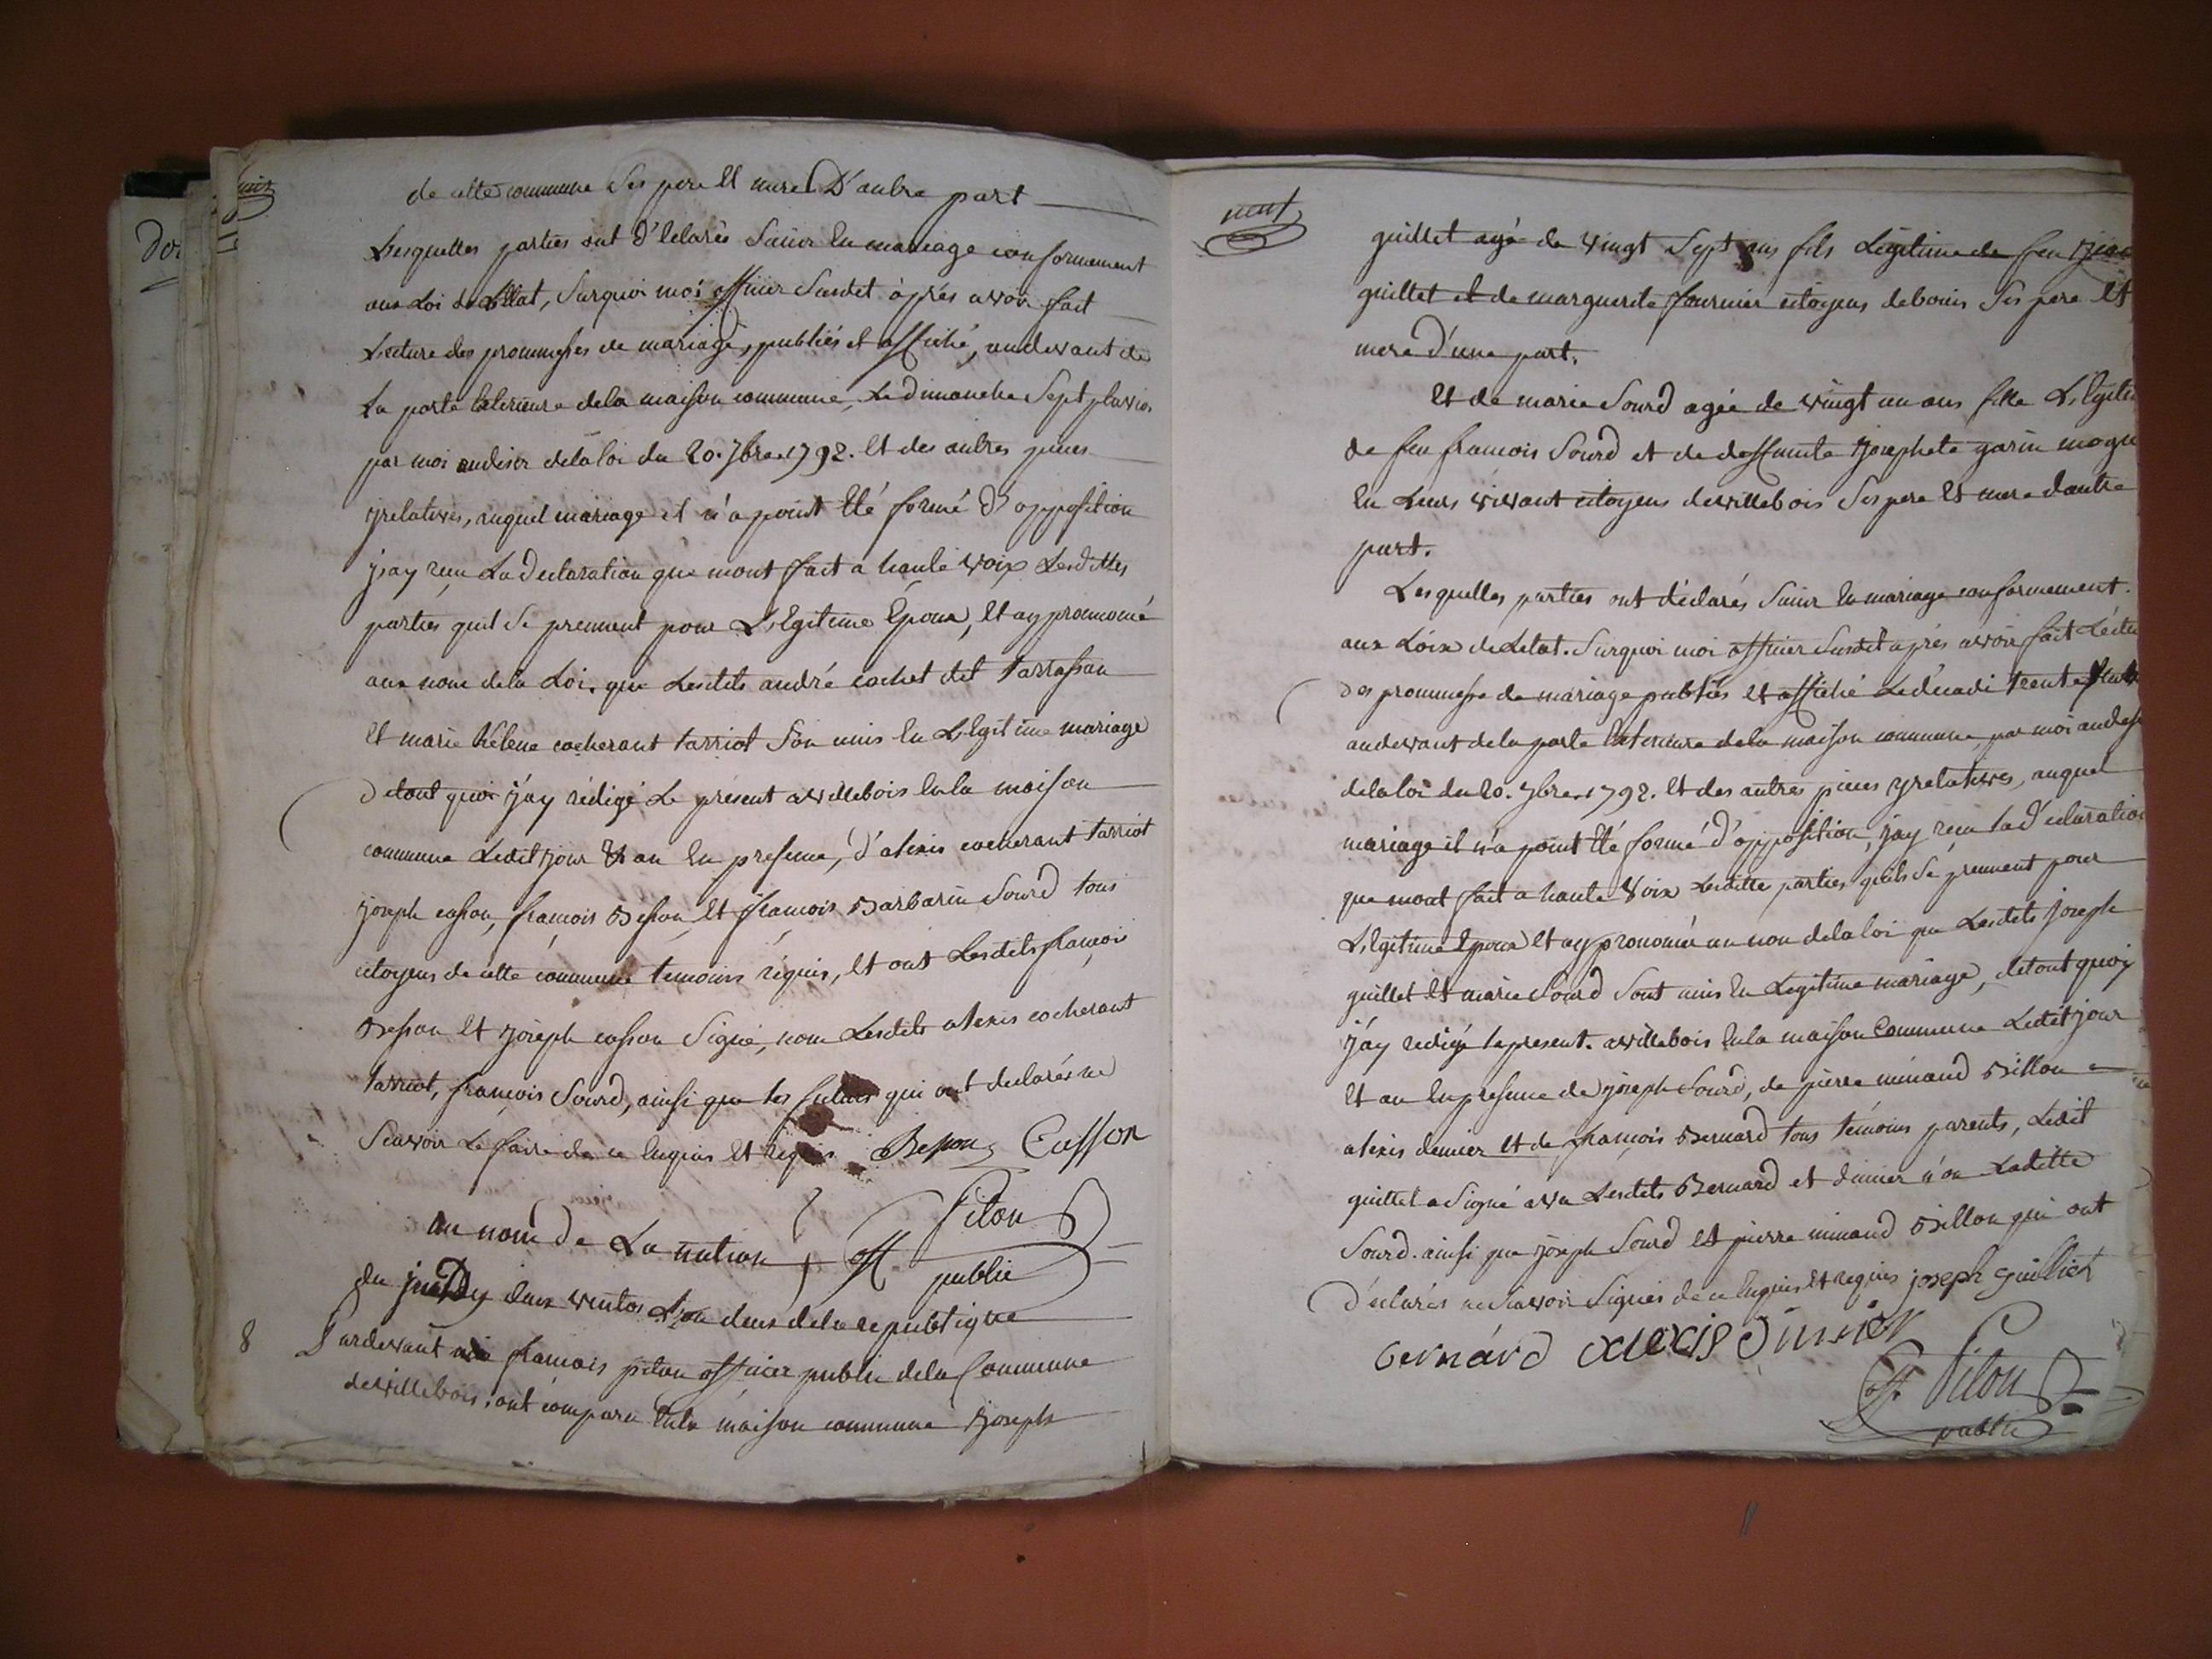 de cette commune Ses pere Et mere D'autre part
Lesquelles parties ont d'Eclarés Sunir En mariage conformement
aux Loi de L'Etat, Surquoi moi officier Susdit àprés avoir fait
Lecture des prommesses de mariage, publiés et affiché, audevant de
La porte Exterieure dela maison commune, Le dimanche Sept pluvio.
par moi audesir dela loi du 20. 7bre. 1792. Et des autres pieces
yrelatives, auquel mariage il n'a point Eté formé d'opposition
j'ay reçu La Declaration que mont fait a haute voix Lesdittes
parties quil Se prennent pour L'Egitime Epoux, Et ay prononcé
aux nom dela Loi. que Lesdits andré cochet dit tarrassan
Et marie hélene cocherant tarriot Son unis En L'Egitime mariage
detout quoi j'ay rédigé Le présent avillebois Enla maison
commune Ledit jour Et an En presence, d'alexis cocherant tarriot
joseph casson, francois Besson, Et francois Barbarin Sourd tous
citoyens de cette commune temoins réquis, Et ont Lesdits françois
Besson Et joseph casson Signé, non Lesdits alexis cocherant
tarriot, françois Sourd, ainsi que les futurs qui ont declarés ne
Scavoir Le faire de ce Enquis Et réquis Besson Casson
au nom de La nation Piton
off public
du jeudy deux ventos L'an deux dela republique
8 Pardevant moi francois piton officier public dela Commune
devillebois, ont comparu Enla maison commune joseph
neuf
guillet agé de vingt Sept ans fils Légitime de feu
guillet et de marguerite fournier citoyens debouis Ses pere Et
mere d'une part.
Et de marie Sourd agée de vingt un ans fille L'Egiti
de feu francois Sourd et de deffunte josephete garin mogn
En Leurs vivant citoyens devillebois Ses pere Et mere dautre
part.
Lesquelles parties ont déclarés Sunir En mariage conformement.
aux Loix de Letat. Surquoi moi officier Susdit aprés avoir fait Léctu
des prommesse de mariage publiés Et affiché Ledécadi trente
audevant dela porte Exterieure dela maison commune, par moi audesi
delaloi du 20. 7bre. 1792. Et des autres pieces yrelatives, auquel
mariage il n'a point Eté formé d'opposition, jay reçu la d'eclaration
que mont fait a haute Voix Lesditte parties quils Se prennent pour
L'Egitime Epoux Et ay prononcé au non delaloi que Lesdits joseph
guillet Et marie Sourd Sont unis En Legitime mariage, detout quoy
j'ay redigé le present. avillebois Enla maison Commune Ledit jour
Et an En presence de joseph Sourd, de pierre minand Billon
alexis dimier et de françois Bernard tous témoins parents, Ledit
guillet a Signé avec Lesdits Bernard et dimier n'on Laditte
Sourd. ainsi que joseph Sourd Et pierre minand Billon qui ont
d'eclarés ne Scavoir Signés de ce Enquis Et requis joseph guilliet
bernárd alexis dimier
off Piton
public